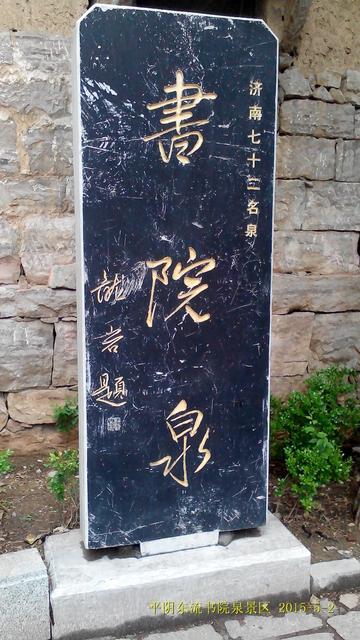 济南七十二名泉
書院泉
龍岩題
平阴东流书院泉景区 2015-5-2